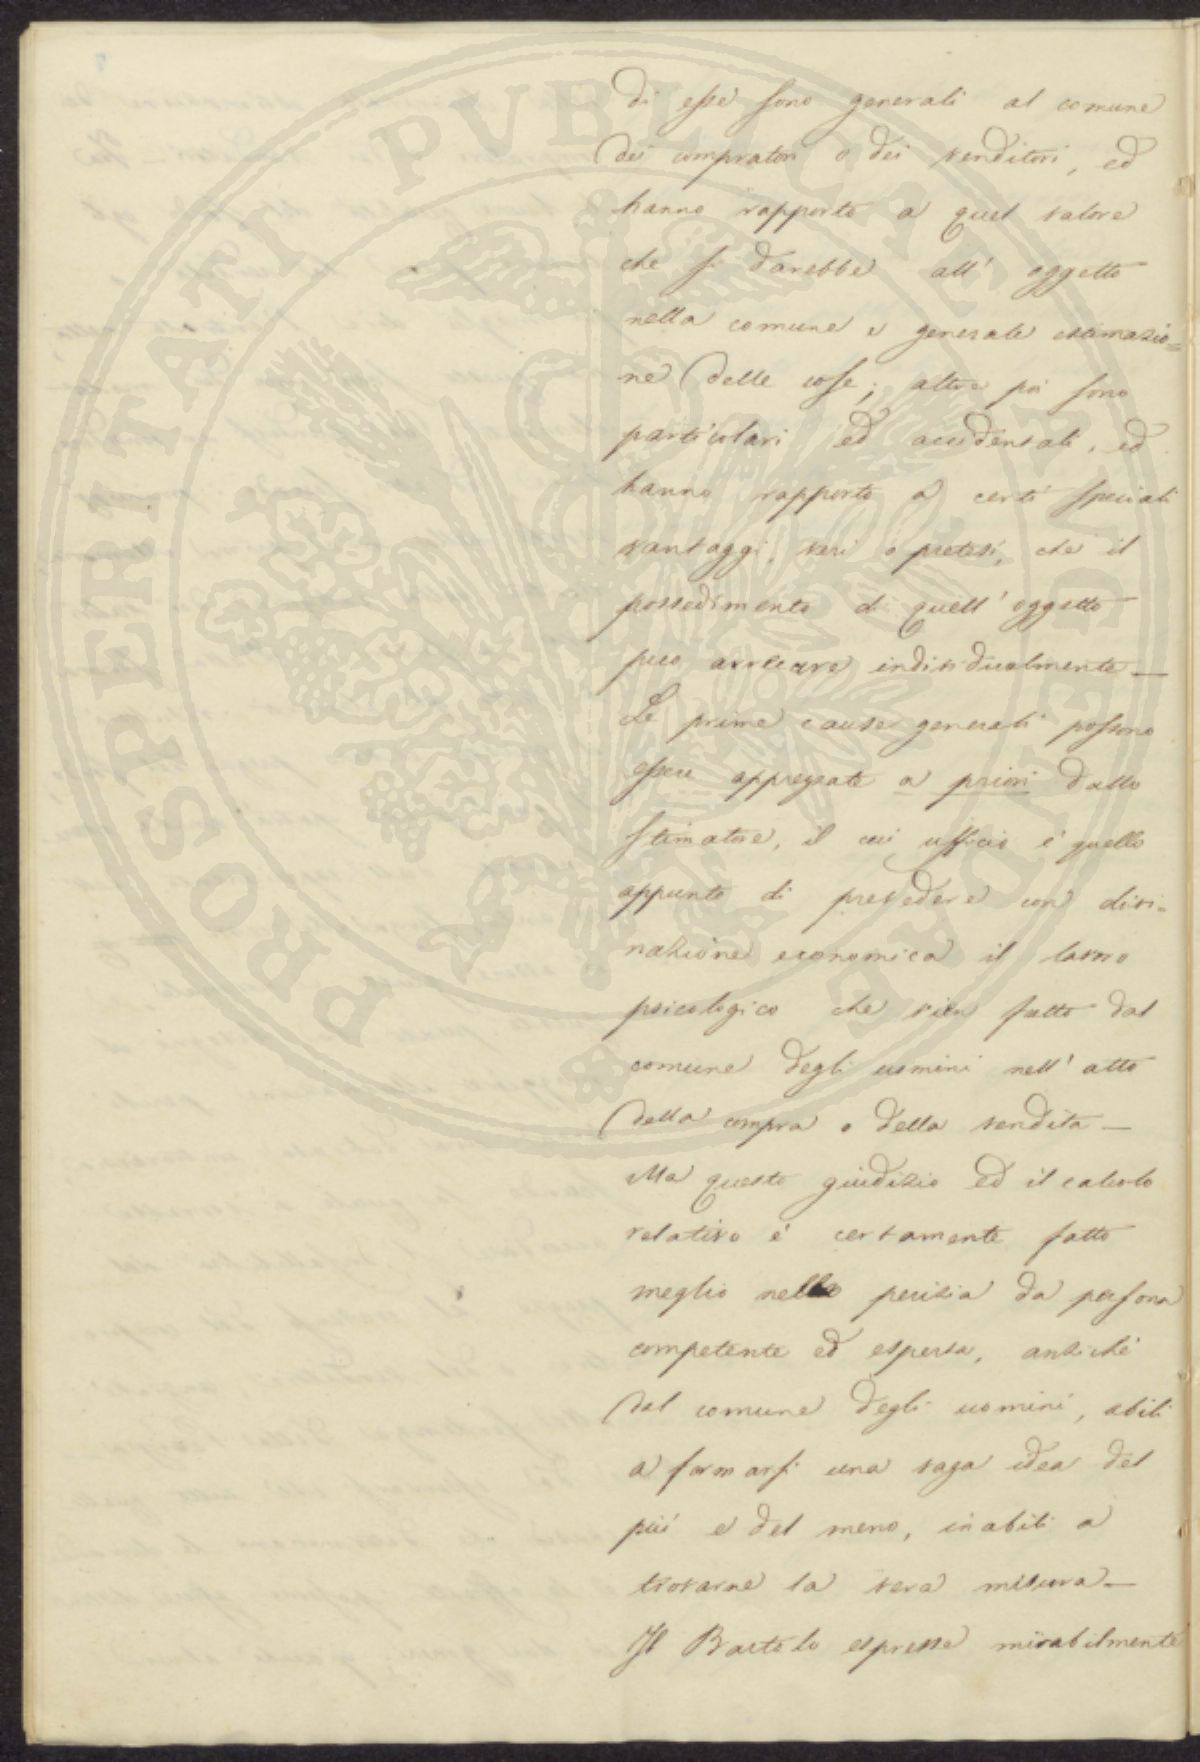 PROSPERITATI PVBLICAE AVGENDAE
di esse sono generali al comune
dei compratori o dei venditori, ed
hanno rapporto a quel valore
che si darebbe all' oggetto
nella comune e generale estimazio=
ne delle cose; altre poi sono
particolari ed accidentali, ed
hanno rapporto a certi speciali
vantaggi, veri o pretesi, che il
possedimento di quell' oggetto
può arrecare individualmente —
Le prime cause generali possono
essere apprezzate a priori dallo
stimatore, il cui ufficio è quello
appunto di prevedere con divi=
nazione economica il lavoro
psicologico che vien fatto dal
comune degli uomini nell' atto
della compra o della vendita —
Ma questo giudizio ed il calcolo
relativo è certamente fatto
meglio nella perizia da persona
competente ed esperta, anziché
dal comune degli uomini, abili
a formarsi una vaga idea del
più e del meno, inabili a
trovarne la vera misura —
Il Bartolo espresse mirabilmente